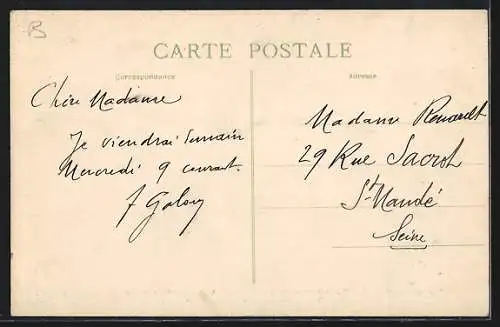 B
CARTE POSTALE
Correspondance
Adresse
Chère Madame
Je viendrai demain
Mercredi 9 courant.
Madame Renault
29 Rue Sacrot
St Mandé
Seine